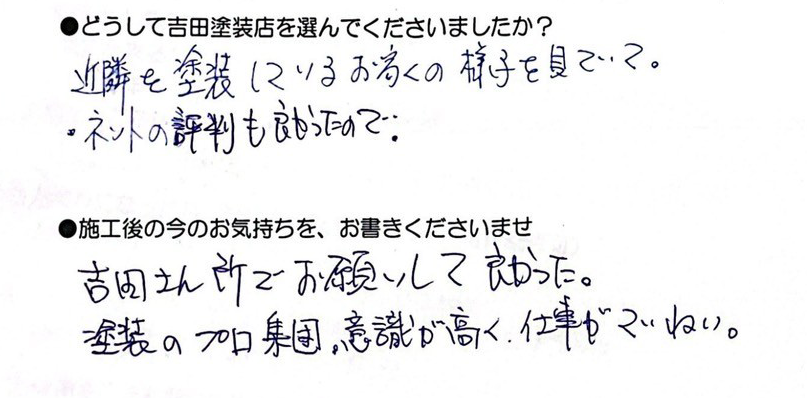 ●どうして吉田塗装店を選んでくださいましたか？
近隣を塗装しているお宅の様子を見ていて。
・ネットの評判も良かったので。
●施工後の今のお気持ちを、お書きくださいませ
吉田さん所でお願いして良かった。
塗装のプロ集団。意識が高く、仕事がていねい。